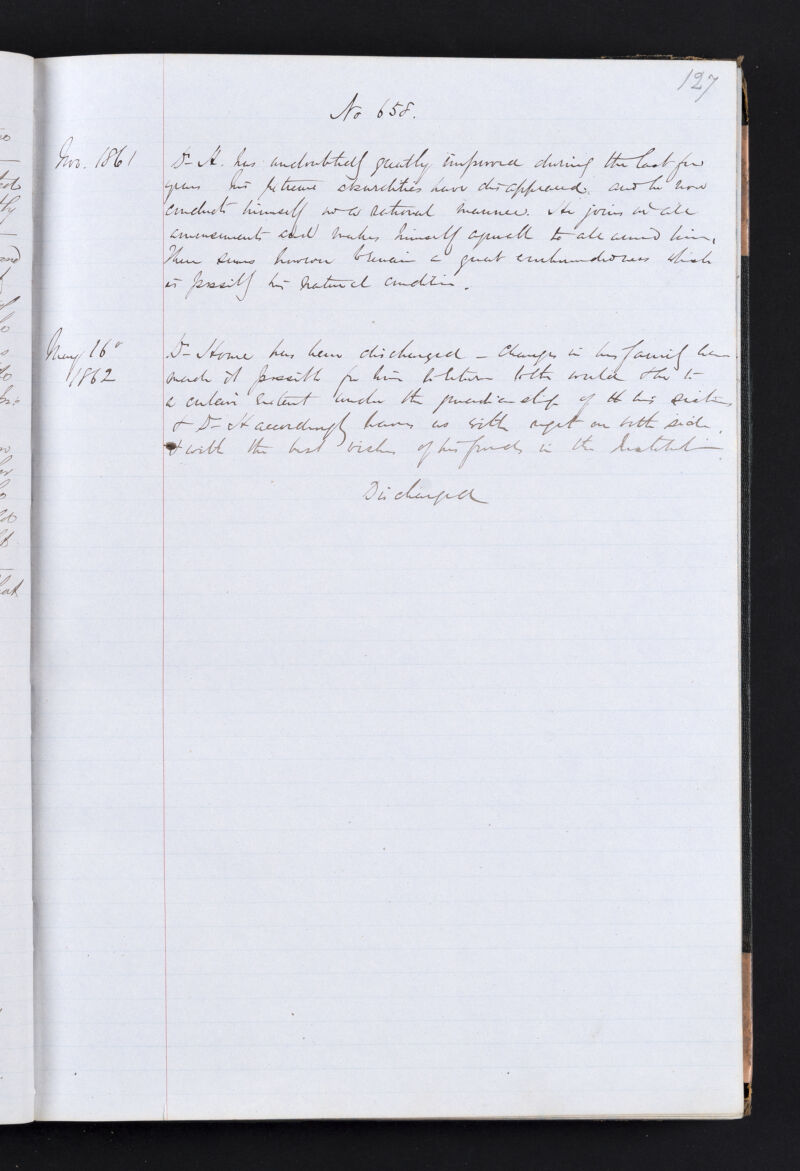 127
No 658.
Nov. 1861 Dr H. has undoubtedly greatly improved during the last few
years his extreme absurdities have disappeared, and he now
conducts himself in a rational manner. He joins in all
amusements and makes himself agreeable to all around him.
There seems however to remain a great which
is possibly his natural condition.
May 16th 1862 Dr Home has been discharged – changes in his family have
made it possible for him to return to the world to
a certain extent under the guardianship of his sisters
& Dr H accordingly leaves us with regret on both sides.
& with the best wishes of his friends in the Institution
Discharged